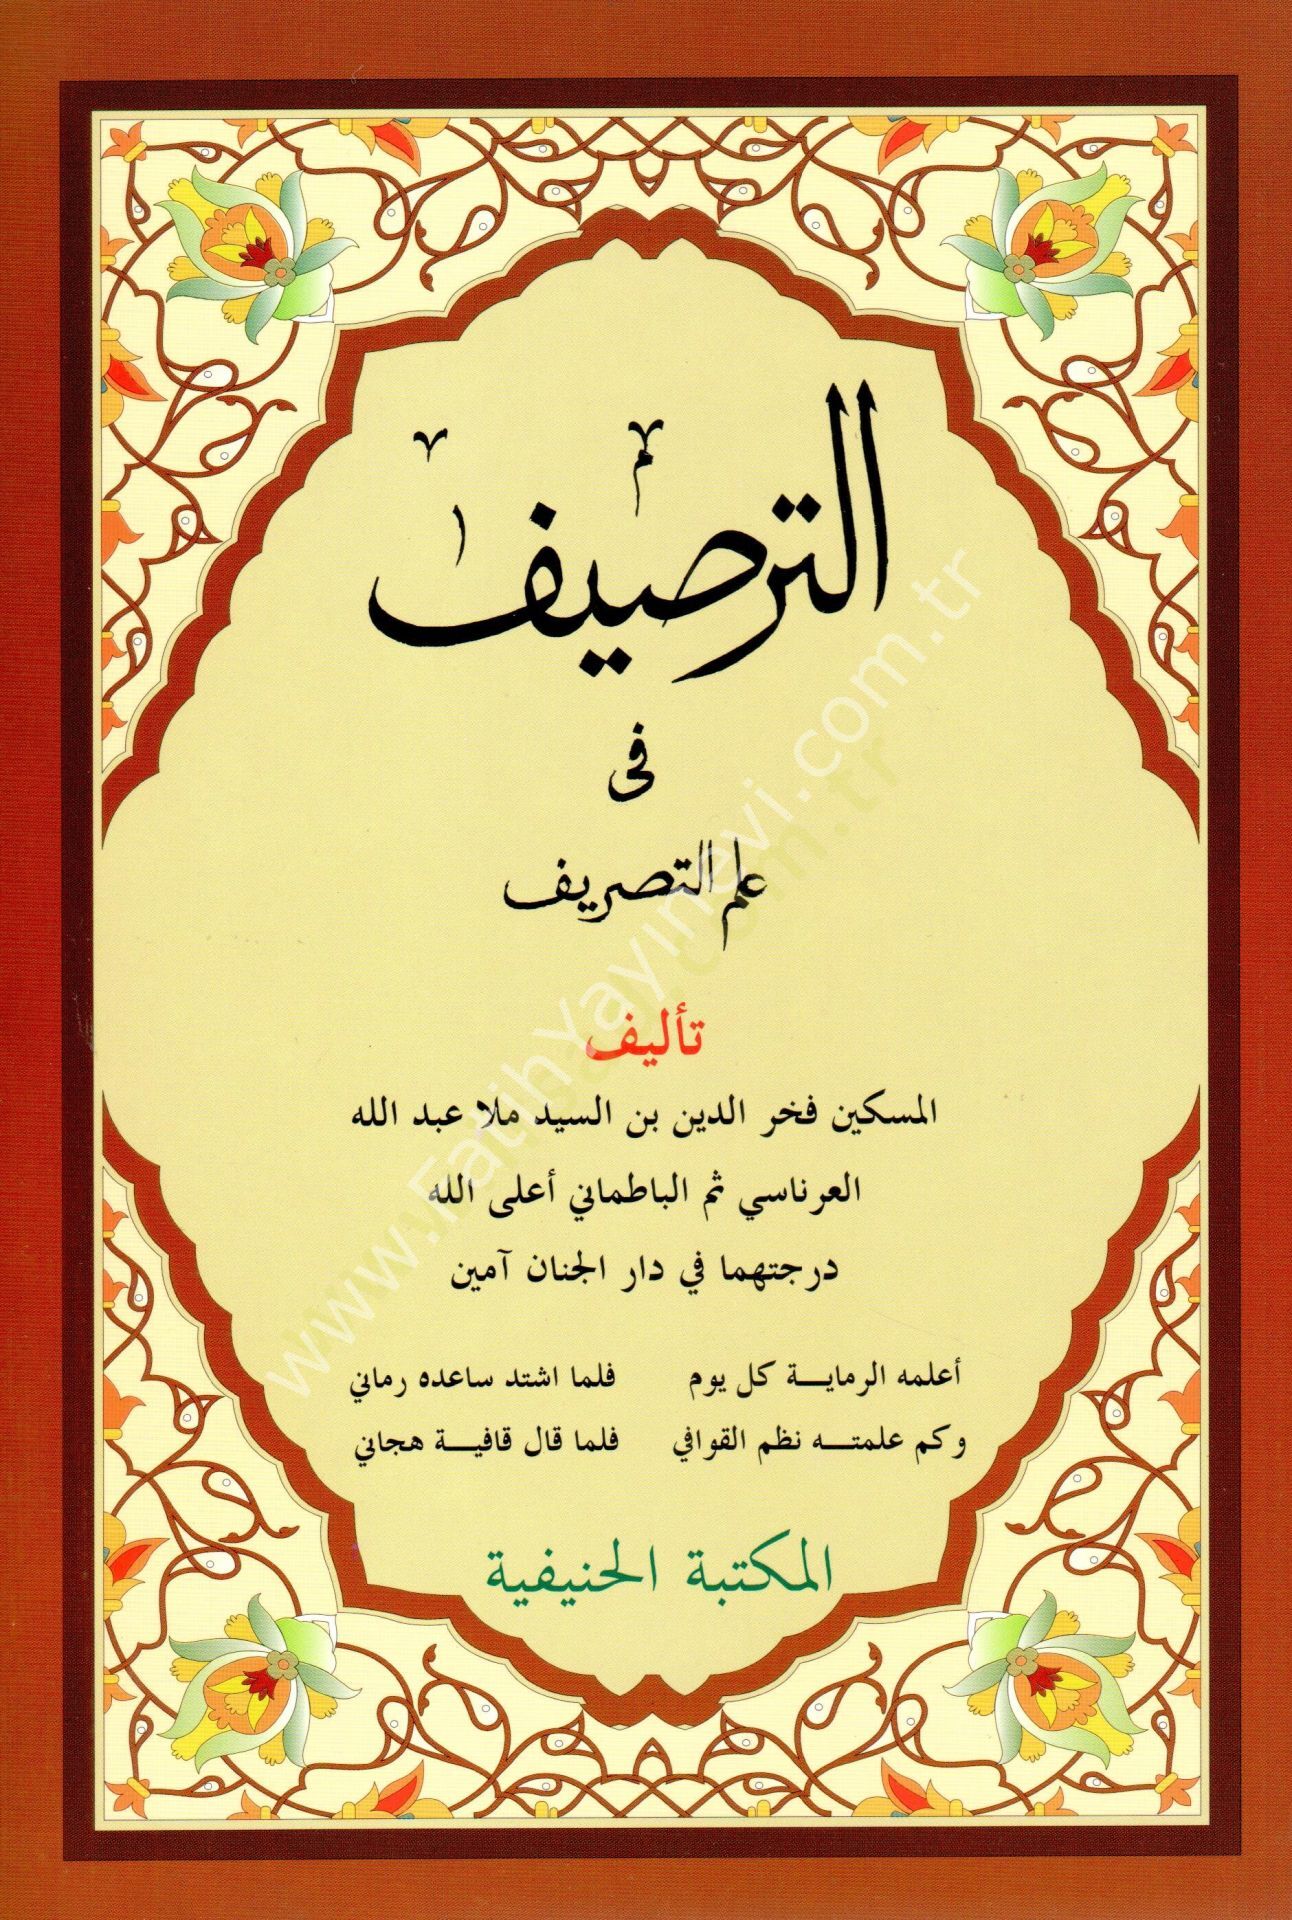 الترصيف
فى
علم التصريف
تأليف
المسكين فخر الدين بن السيد ملا عبد الله
العرناسي ثم الباطماني أعلى الله
درجتهما في دار الجنان آمين
أعلمه الرمايـــة كل يوم فلما اشتد ساعده رماني
وكم علمتـــه نظم القوافي فلما قال قافيـــة هجاني
المكتبة الحنيفية
www.FatihYayinevi.com.tr